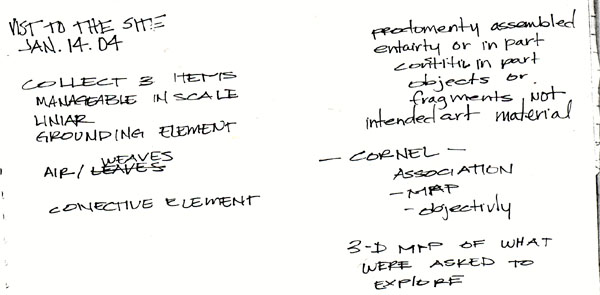 VIST TO THE SITE
JAN. 14. 04
COLLECT 3 ITEMS
MANAGEABLE IN SCALE
LINIAR
GROUNDING ELEMENT
WEAVES
AIR/ LEAVES
CONECTIVE ELEMENT
predomenty assembled
entairty or in part
in part
objects or.
fragments NOT
intended art material
— CORNEL —
ASSOCIATION
- MAP
- objectivly
3-D MAP OF WHAT
WERE ASKED TO
EXPLORE